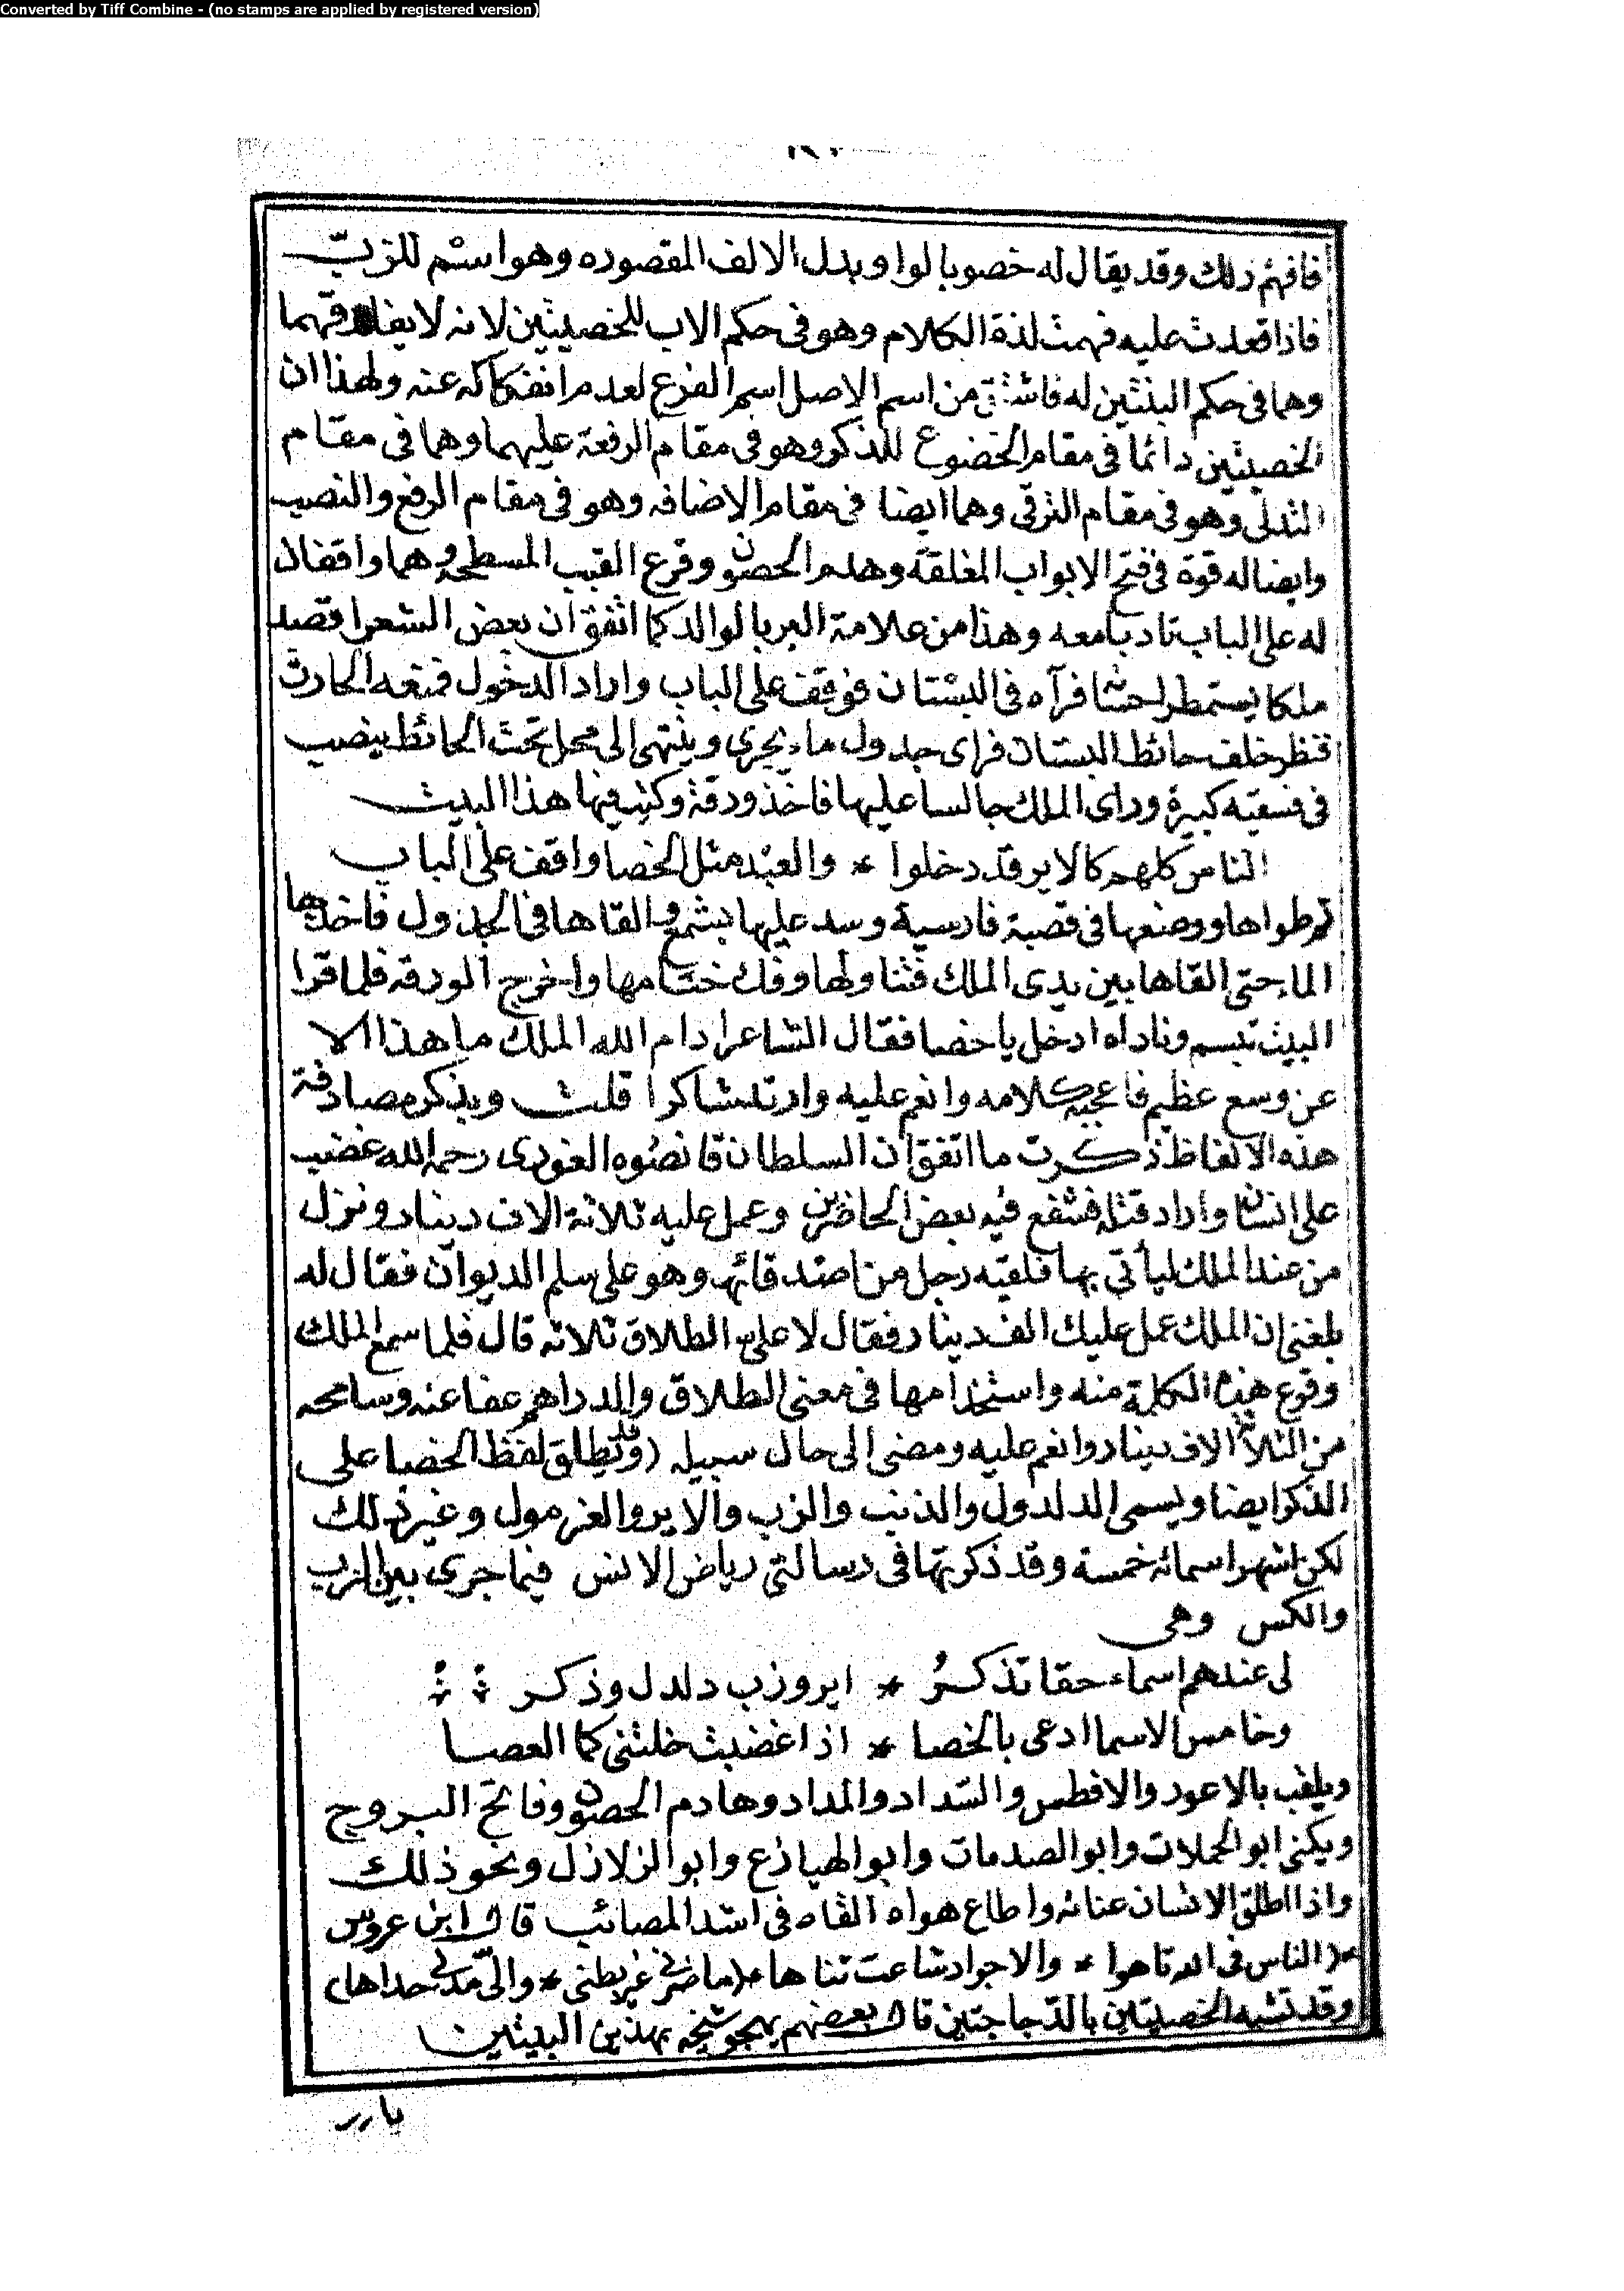 Converted by Tiff Combine - (no stamps are applied by registered version)
فافهم ذلك وقد يقال له خصو بالواو بدل الالف المقصوره وهو اسم للزبّ
فاذا قعدت عليه فهمت لذة الكلام وهو فى حكم الاب للخصيتين لانه لا يفارقهما
وهما فى حكم البنتين له فاشتق من اسم الاصل اسم الفرع لعدم انفكاكه عنه ولهذا ان
الخصيتين دائما فى مقام الخضوع للذكر وهو فى مقام الرفعة عليهما وهما فى مقام
التدلى وهو فى مقام الترقى وهما ايضا فى مقام الاضافه وهو فى مقام الرفع والنصب
وايضا له قوة فى فتح الابواب المغلقة وهدم الحصون وقرع القبب المسطحه وهما واقفان
له على الباب تادبا معه وهذا من علامة البر بالوالد كما اتفق ان بعض الشعرا قصد
ملكا يستمطر احسانا فرآه فى البستان فوقف على الباب واراد الدخول فمنعه الحارث
فنظر خلف حائط البستان فراى جدول ماء يجرى وينتهى الى محل تحت الحائط ينصب
فى فسقيه كبيرة وراى الملك جالسا عليها فاخذ ورقة وكتب فيها هذا البيت
الناس كلهم كالاير قد دخلوا * والعبد مثل الخصا واقف على الباب
ثم طواها ووضعها فى قصبة فارسية وسد عليها بشمع والقاها فى الجدول فاخذها
الماء حتى القاها بين يدى الملك فتناولها وفك ختامها واخرج الورقه فلما قرا
البيت تبسم وناداه ادخل يا خصا فقال الشاعر ادام الله الملك ما هذا الا
عن وسع عظيم فاعجبه كلامه وانعم عليه وارتد شاكرا قلت وبذكر مصادفة
هذه الالفاظ ذكرت ما اتفق ان السلطان قانصوه الغورى رحمه الله غضب
على انسان واراد قتله فتشفع فيه بعض الحاضرين وعمل عليه ثلاثة الاف دينار ونزل
من عند الملك ليأتى بها فلقيه رجل من اصدقائه وهو على سلم الديوان فقال له
بلغنى ان الملك عمل عليك الف دينار فقال لا علىّ الطلاق ثلاثه قال فلما سمع الملك
وقوع هذه الكلمة منه واستخدامها فى معنى الطلاق والدراهم عفا عنه وسامحه
من الثلاثة الاف دينار وانعم عليه ومضى الى حال سبيله (وقد يطلق لفظ الخصا على
الذكر ايضا ويسمى الدلدول والذنب والزب والاير والغرمول وغير ذلك
لكن اشهر اسمائه خمسة وقد ذكرتها فى رسالتى رياض الانس فيما جرى بين الزب
والكس وهى
لى عندهم اسماء حقا تذكرُ * اير وزب دلدل وذكر
وخامس الاسما ادعى بالخصا * اذا غضبت خلتنى كما العصا
ويلقب بالاعور والافطس والسّداد والمداد وهادم الحصون وفاتح البروج
ويكنى ابو الحملات وابو الصدمات وابو الهيازع وابو الزلازل ونحو ذلك
واذا اطلق الانسان عنانه واطاع هواه القاه فى اشد المصائب قال ابن عروس
(الناس فى اللّه تاهوا * والاجواد شاعت ثناها * (ما ضرنى غير بطنى *
وقد تشبه الخصيتين بالدّجاجتين قال بعضهم يهجو شيخه بهذين البيتين
يا رب